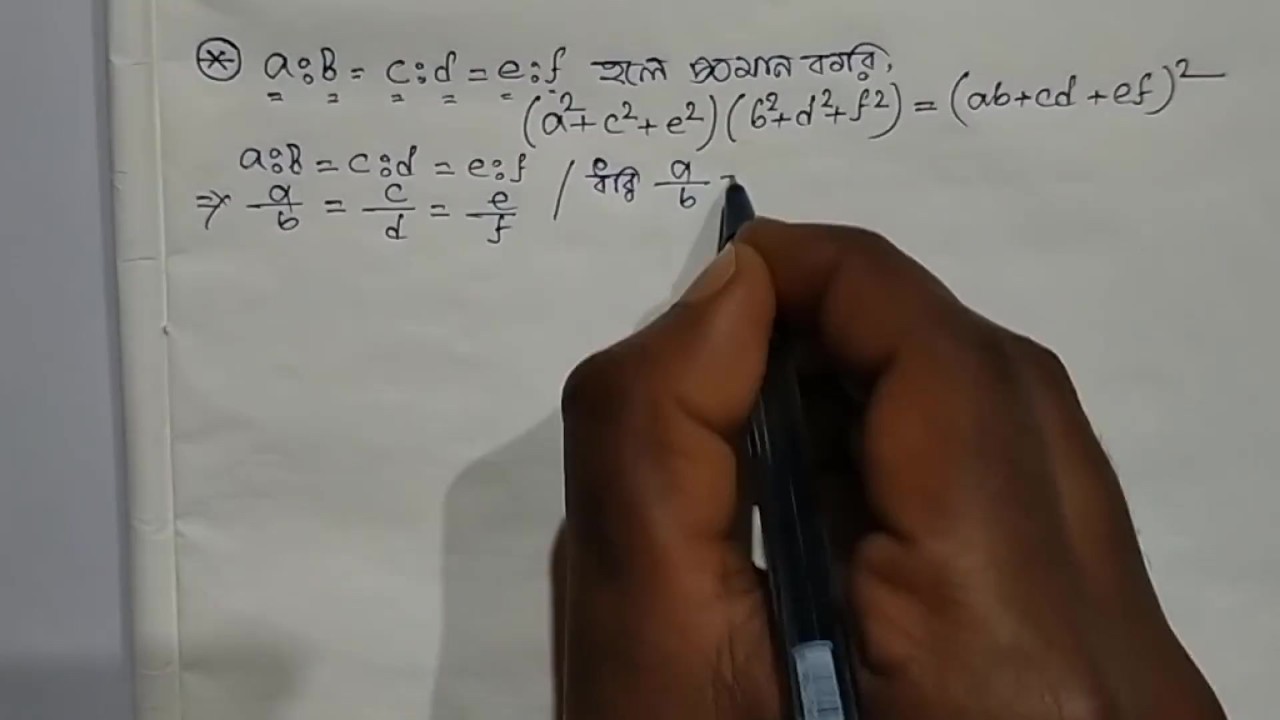 * a:B = c:d = e:f হলে প্রমান করি,
(a²+c²+e²)(b²+d²+f²) = (ab+cd+ef)²
a:B = c:d = e:f
⇒ a/b = c/d = e/f / ধরি a/b =